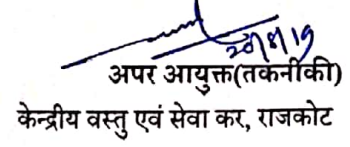 28/8/19
अपर आयुक्त(तकनीकी)
केन्द्रीय वस्तु एवं सेवा कर, राजकोट